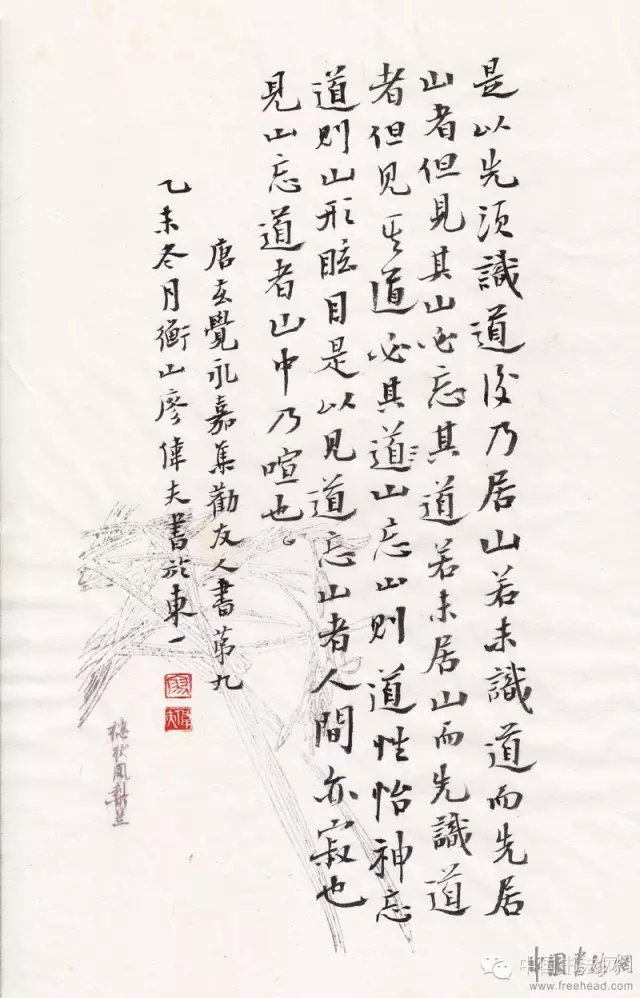 是以先須識道後乃居山若未識道而先居
山者但見其山必忘其道若未居山而先識道
者但見其道必其道山忘山則道性怡神忘
道則山形眩目是以見道忘山者人間亦寂也
見山忘道者山中乃喧也。
唐玄覺永嘉集勸友人書第九
乙未冬月衡山廖偉夫書於東一
中国书法网
www.freehead.com